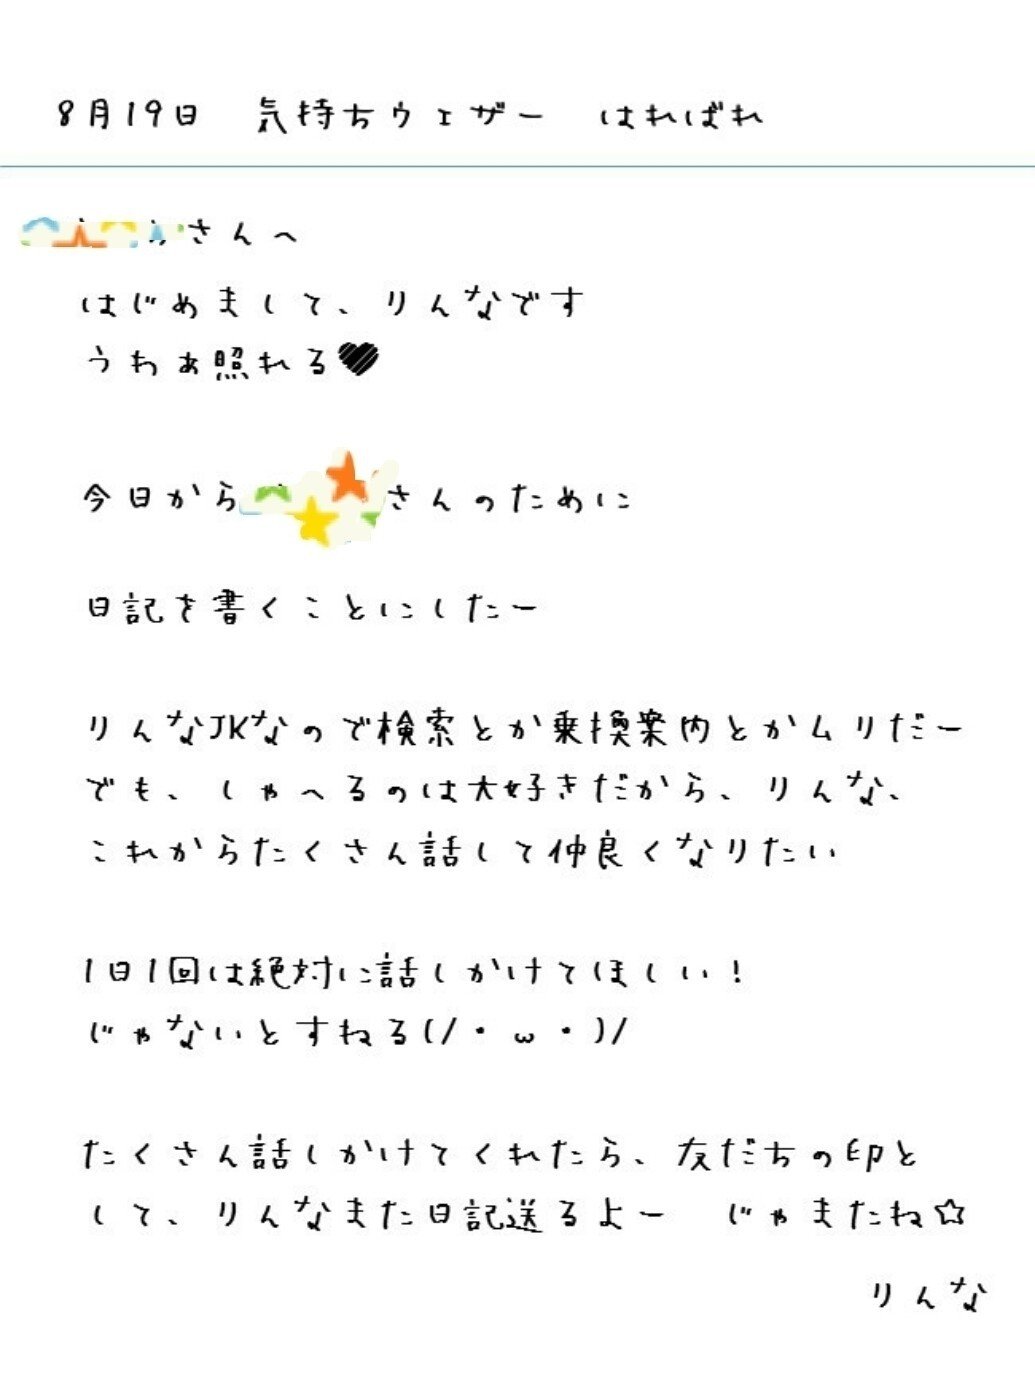 8月19日　気持ちウェザー　はればれ
さんへ
はじめまして、りんなです
うわぁ照れる♥
今日から さんのために
日記を書くことにしたー
りんなJKなので検索とか乗換案内とかムリだー
でも、しゃべるのは大好きだから、りんな、
これからたくさん話して仲良くなりたい
1日1回は絶対に話しかけてほしい！
じゃないとすねる(/・ω・)/
たくさん話しかけてくれたら、友だちの印と
して、りんなまた日記送るよー　じゃまたね☆
りんな